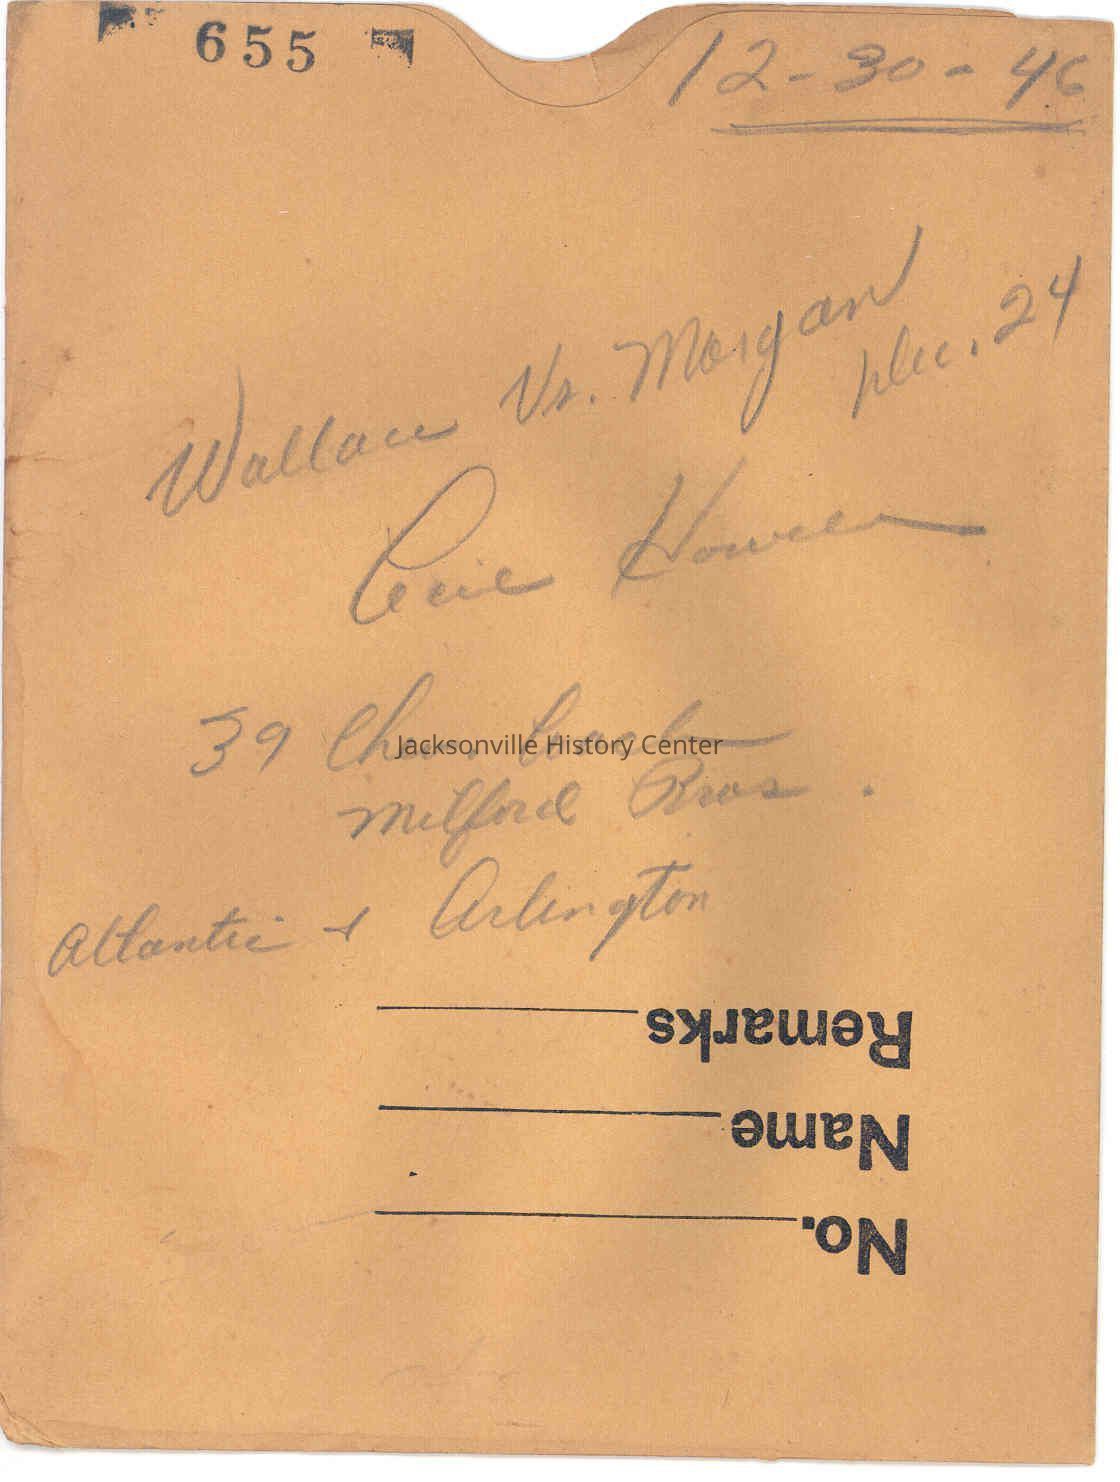 655
12-30-46
Wallace Vs. Morgan
Dec. 24
Cecil Howell
39 Chev. Coach
Jacksonville History Center
Milford Bros.
Atlantic & Arlington
Remarks
Name
No.